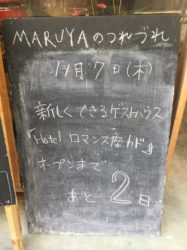 MARUYAのつれづれ
11月7日(木)
新しくできるゲストハウス
『Hostel ロマンス座カド』
オープンまで
あと2日